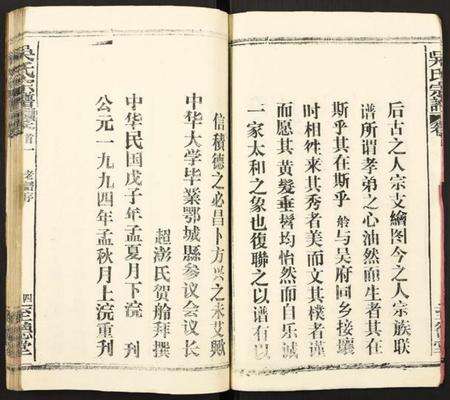 吳氏宗譜
后古之人宗支繪图今之人宗族联
谱所谓孝弟之心油然而生者其在
斯乎其在斯乎 船与吴府同乡接壤
时相往来其秀者美而文其樸者谨
而愿其黄髮垂髫均怡然而自乐诚
一家太和之象也復聯之以谱有以
信積德之必昌卜方兴之未艾歟
中华大学毕業鄂城縣参议会议长
超澎氏贺船拜撰
中华民国戊子年孟夏月下浣 刊
公元一九九四年孟秋月上浣重刊
吳氏宗譜
卷首一
老谱序
四
至德堂